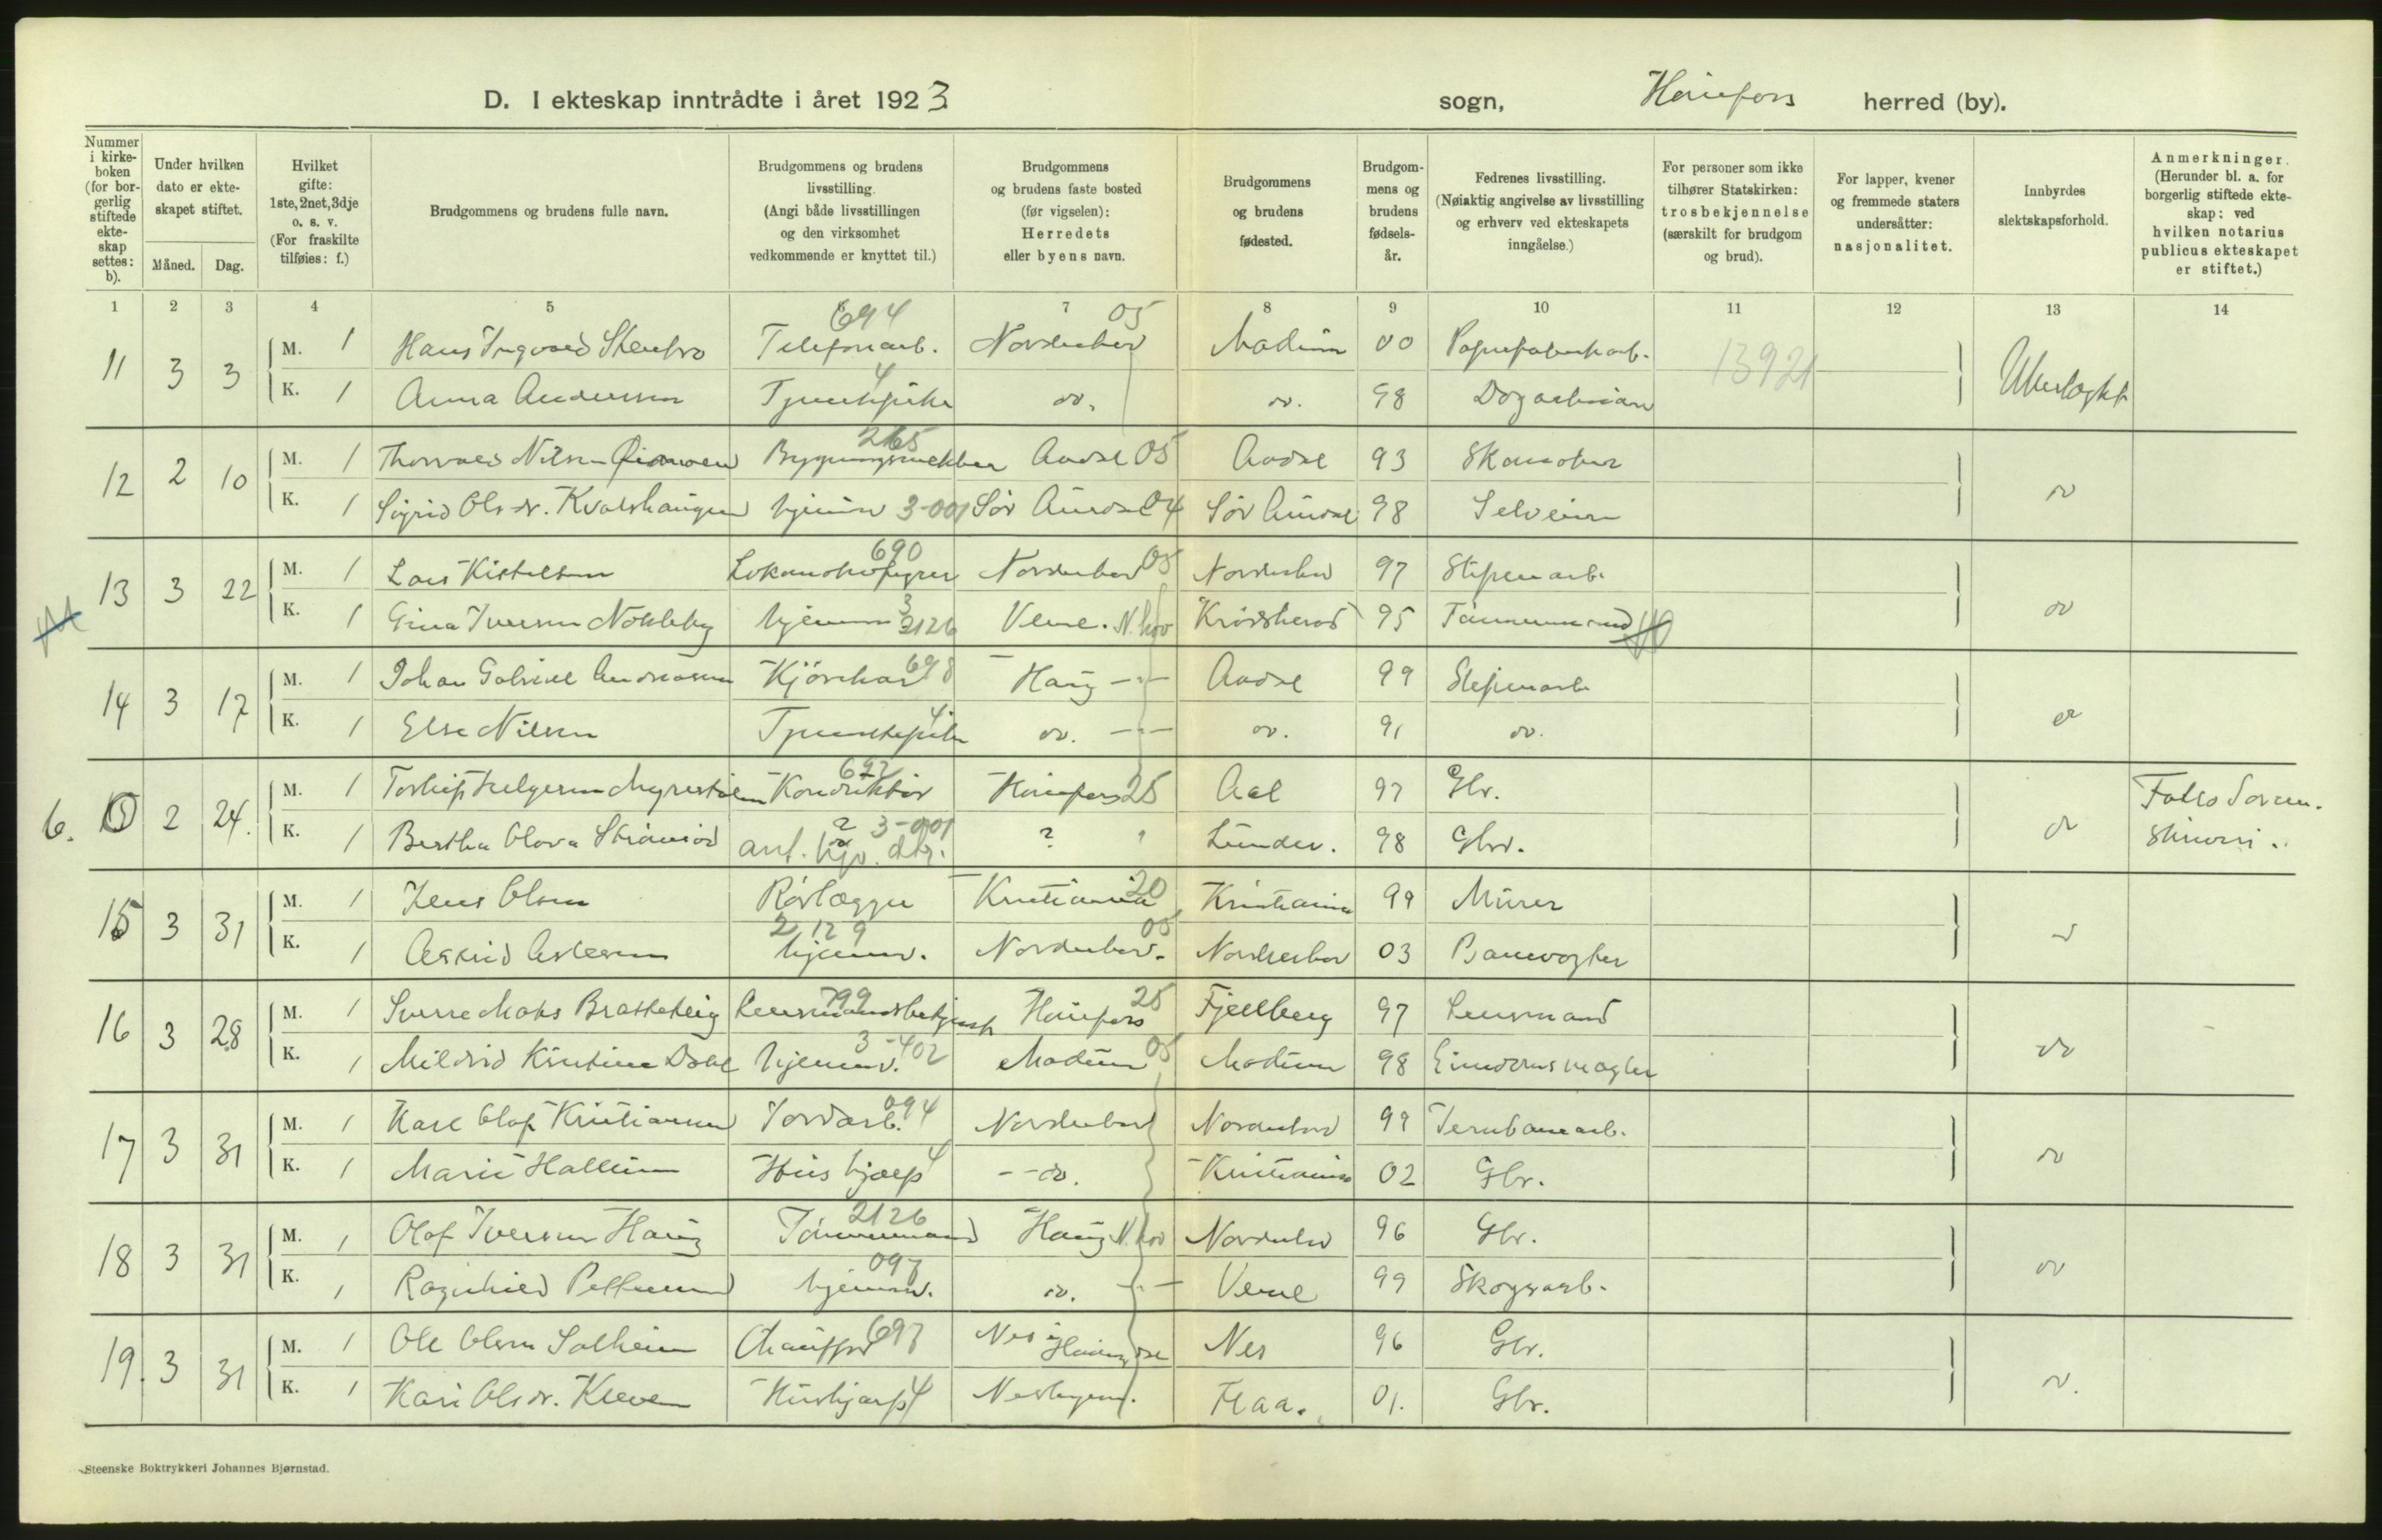 D. I ekteskap inntrådte i året 1923
sogn, Hönefoss herred (by).
Nummer i kirke-boken (for bor-gerlig stiftede ekte-skap settes: b).
Under hvilken dato er ekte-skapet stiftet.
Måned. Dag.
Hvilket gifte: 1ste, 2net, 3dje o. s. v. (For fraskilte tilføies: f.)
Brudgommens og brudens fulle navn.
Brudgommens og brudens livsstilling. (Angi både livsstillingen og den virksomhet vedkommende er knyttet til.)
Brudgommens og brudens faste bosted (før vigselen): Herredets eller byens navn.
Brudgommens og brudens fødested.
Brudgom-mens og brudens fødsels-år.
Fedrenes livsstilling. (Nøiaktig angivelse av livsstilling og erhverv ved ekteskapets inngåelse.)
For personer som ikke tilhører Statskirken: trosbekjennelse (særskilt for brudgom og brud).
For lapper, kvener og fremmede staters undersåtter: nasjonalitet.
Innbyrdes slektskapsforhold.
Anmerkninger. (Herunder bl. a. for borgerlig stiftede ekte-skap: ved hvilken notarius publicus ekteskapet er stiftet.)
1 2 3 4 5 6 7 8 9 10 11 12 13 14
694 05
11 3 3 M. 1 Hans Ingvald Stenbro Telefonarb. Norderhov Modum 00 Papirfabrikarb. 13921 Ubeslægtet
K. 1 Anna Andersen Tjenestepike 4 do. do. 98 Dagarbeider
265
12 2 10 M. 1 Thorvald Nilsen Bygningssnekker Aadal 05 Aadal 93 Skomaker do
K. 1 Sigrid Olsdr. Kvalshaugen hjemme 3-001 Sör Aurdal 04 Sör Aurdal 98 Selveier
690
13 3 22 M. 1 Lars Kistelsen Lokomotivfyrer Norderhov 05 Norderhov 97 Sliperiarb. do
K. 1 Gina Iversen Nokleby hjemme 3 2126 Veme. N.hov Krödsherad 95 Tömmermand
14 3 17 M. 1 Johan Gabriel Andreassen Kjörekar 698 Haug -"- Aadal 99 Sliperiarb. do
K. 1 Else Nilsen Tjenestepike 4 do. -"- do. 91 do.
692
6. 15 2 24. M. 1 Torleif Helgesen Myrestölen Konduktör Hönefoss 25 Aal 97 Gbr. do
K. 1 Bertha Olava Strömsöd ant. hjv. dtr. 2 3-001 ? Lunder. 98 Gbr.
15 3 31 M. 1 Jens Olsen Rörlægger Kristiania 20 Kristiania 99 Murer do
2 12 9 05
K. 1 Astrid Aslesen hjemmev. Norderhov. Norderhov 03 Banevogter
799 25
16 3 28 M. 1 Sverre Maks Bratteteig Lensmandsbetjent Hönefoss Fjelberg 97 Lensmand do
K. 1 Mildrid Kristine Dahl hjemmev. 3-402 Modum 05 Modum 98 Eiendomsmægler
17 3 31 M. 1 Karl Olaf Kristiansen Jordarb. 094 Norderhov Norderhov 99 Jernbanearb. do
K. 1 Marie Hallum Hushjælp 4 -- do. Kristiania 02 Gbr.
2126
18 3 31 M. 1 Olaf Iversen Haug Tömmermand Haug N.hov Norderhov 96 Gbr. do
097
K. 1 Ragnhild Pettersen hjemmev. do. -"- Veme 99 Skogsarb.
19. 3 31 M. 1 Ole Olsen Solheim Chauffør 697 Nes i Hallingdal Nes 96 Gbr. do.
K. 1 Kari Olsdr. Kleven Hushjælp 4 Nesbyen. Flaa. 01. Gbr.
Steenske Boktrykkeri Johannes Bjørnstad.